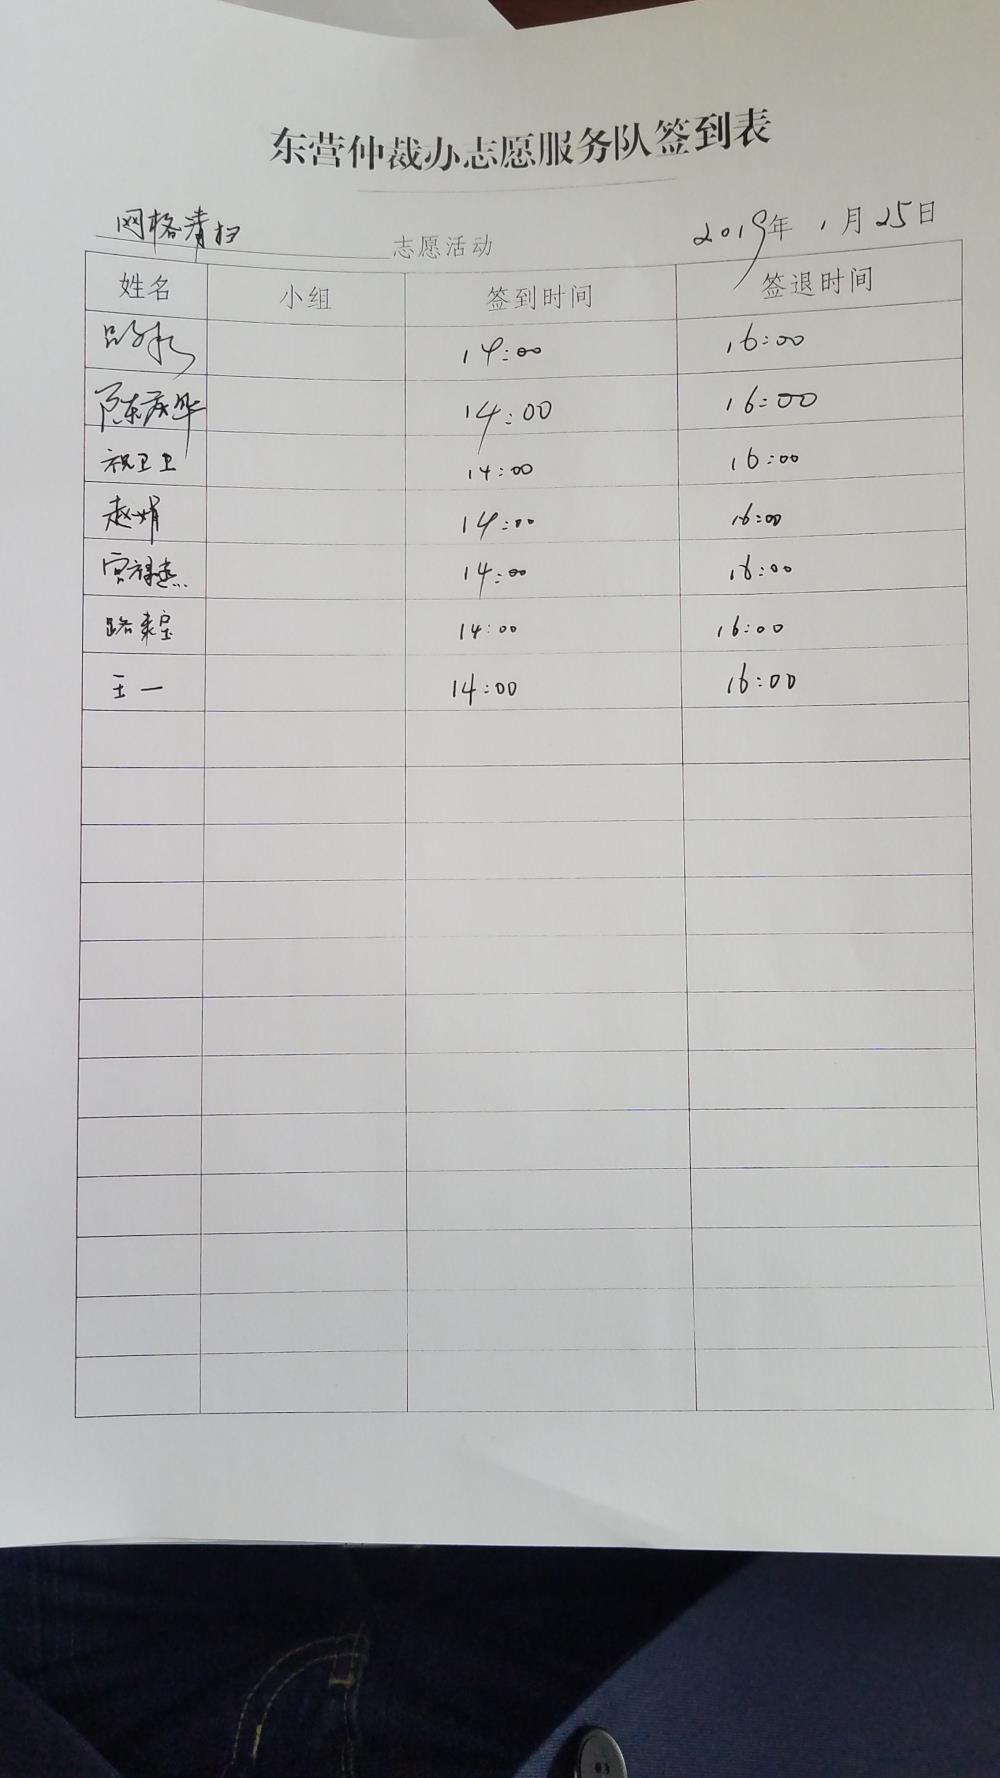 东营仲裁办志愿服务队签到表
网格清扫 志愿活动 2019年 1月25日
姓名 小组 签到时间 签退时间
14:00 16:00
陈庆华 14:00 16:00
祝卫卫 14:00 16:00
赵娟 14:00 16:00
宫禄 14:00 16:00
路来宝 14:00 16:00
王一 14:00 16:00